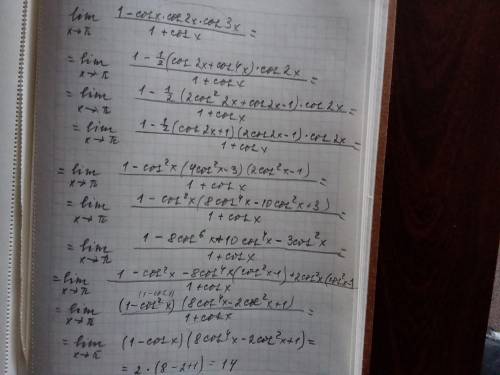 lim x→π (1 - cosx·cos2x·cos3x)/(1 + cosx) =
= lim x→π (1 - 1/2(cos2x + cos4x)·cos2x)/(1 + cosx) =
= lim x→π (1 - 1/2(2cos²2x + cos2x - 1)·cos2x)/(1 + cosx) =
= lim x→π (1 - 1/2(cos2x + 1)(2cos2x - 1)·cos2x)/(1 + cosx) =
= lim x→π (1 - cos²x(4cos²x - 3)(2cos²x - 1))/(1 + cosx) =
= lim x→π (1 - cos²x(8cos⁴x - 10cos²x + 3))/(1 + cosx) =
= lim x→π (1 - 8cos⁶x + 10cos⁴x - 3cos²x)/(1 + cosx) =
= lim x→π (1 - cos²x - 8cos⁴x(cos²x - 1) + 2cos²x(cos²x - 1))/(1 + cosx)
= lim x→π ((1 - cos²x)(8cos⁴x - 2cos²x + 1))/(1 + cosx) =
= lim x→π (1 - cosx)(8cos⁴x - 2cos²x + 1) =
= 2·(8 - 2 + 1) = 14